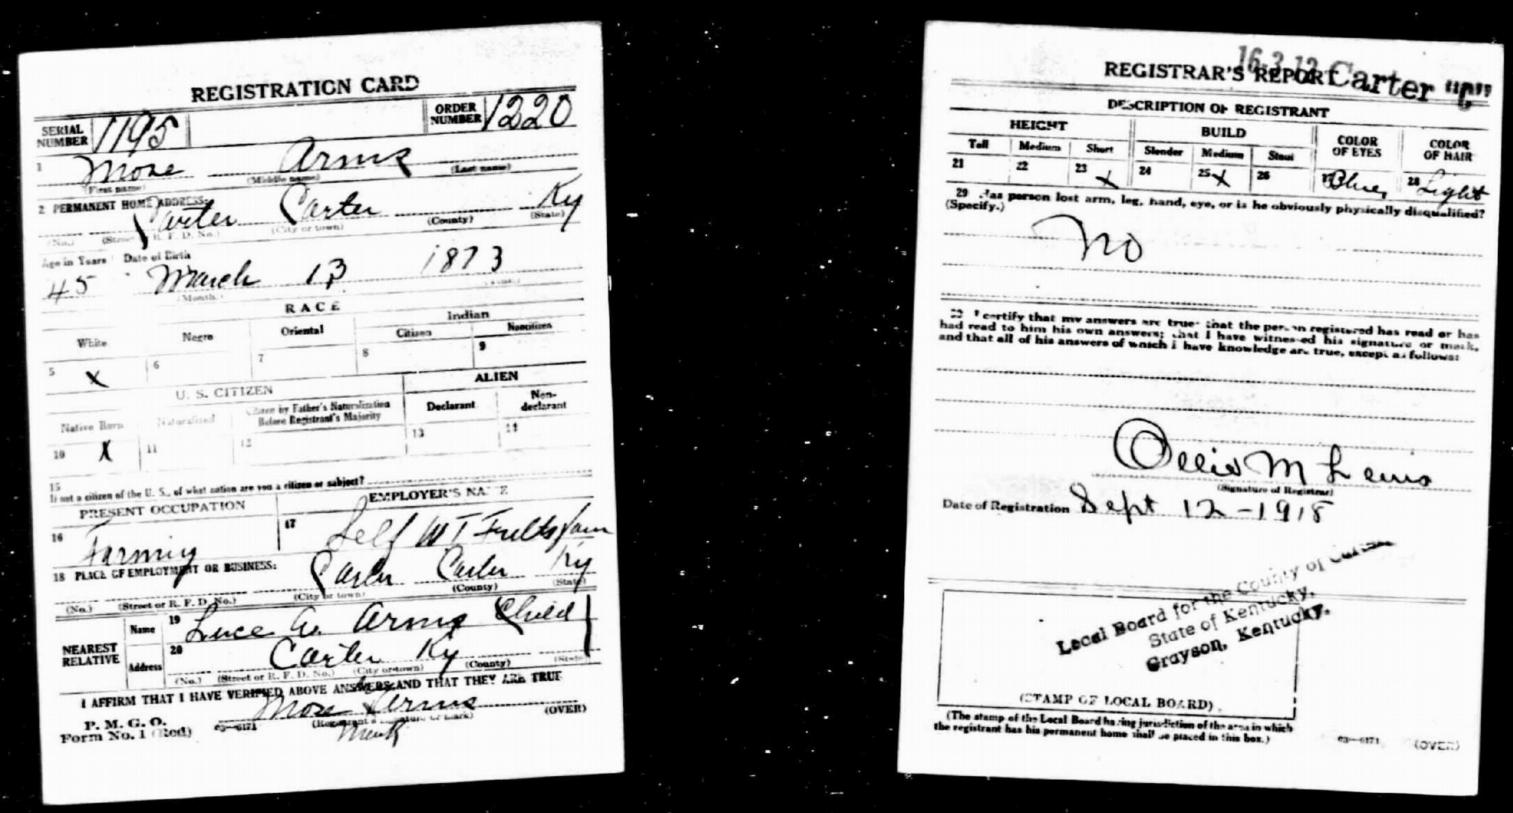 REGISTRATION CARD
SERIAL NUMBER 1195 ORDER NUMBER 1220
1 Mose Arms
(First name) (Middle name) (Last name)
2 PERMANENT HOME ADDRESS:
Carter Carter Ky
(No.) (Street or R. F. D. No.) (City or town) (County) (State)
Age in Years Date of Birth
45 March 13 1873
(Month.)
RACE
White Negro Oriental Indian
Citizen Noncitizen
5 X 6 7 8 9
U. S. CITIZEN ALIEN
Native Born Naturalized Citizen by Father's Naturalization Before Registrant's Majority Declarant Non-declarant
10 X 11 12 13 14
15
If not a citizen of the U. S., of what nation are you a citizen or subject?
PRESENT OCCUPATION EMPLOYER'S NAME
16 Farming 17 Self W T Fults
18 PLACE OF EMPLOYMENT OR BUSINESS:
Carter Carter Ky
(No.) (Street or R. F. D. No.) (City or town) (County) (State)
NEAREST RELATIVE Name 19 Luce A. Arms Child
Address 20 Carter Ky
(No.) (Street or R. F. D. No.) (City or town) (County) (State)
I AFFIRM THAT I HAVE VERIFIED ABOVE ANSWERS AND THAT THEY ARE TRUE
P. M. G. O.
Form No. 1 (Red) 03—6171 Mose Arms (Registrant's signature or mark) (OVER)
Mark
16-3-12 Carter "C"
REGISTRAR'S REPORT
DESCRIPTION OF REGISTRANT
HEIGHT BUILD COLOR OF EYES COLOR OF HAIR
Tall Medium Short Slender Medium Stout
21 22 23 X 24 25 X 26 27 Blue 28 Light
29 Has person lost arm, leg, hand, eye, or is he obviously physically disqualified?
(Specify.)
No
I certify that my answers are true; that the person registered has read or has
had read to him his own answers; that I have witnessed his signature or mark,
and that all of his answers of which I have knowledge are true, except as follows:
Ollie M Lewis
(Signature of Registrar)
Date of Registration Sept 12-1918
Local Board for the County of Carter
State of Kentucky,
Grayson, Kentucky.
(STAMP OF LOCAL BOARD)
(The stamp of the Local Board having jurisdiction of the area in which
the registrant has his permanent home shall be placed in this box.)
03—6171 (OVER)